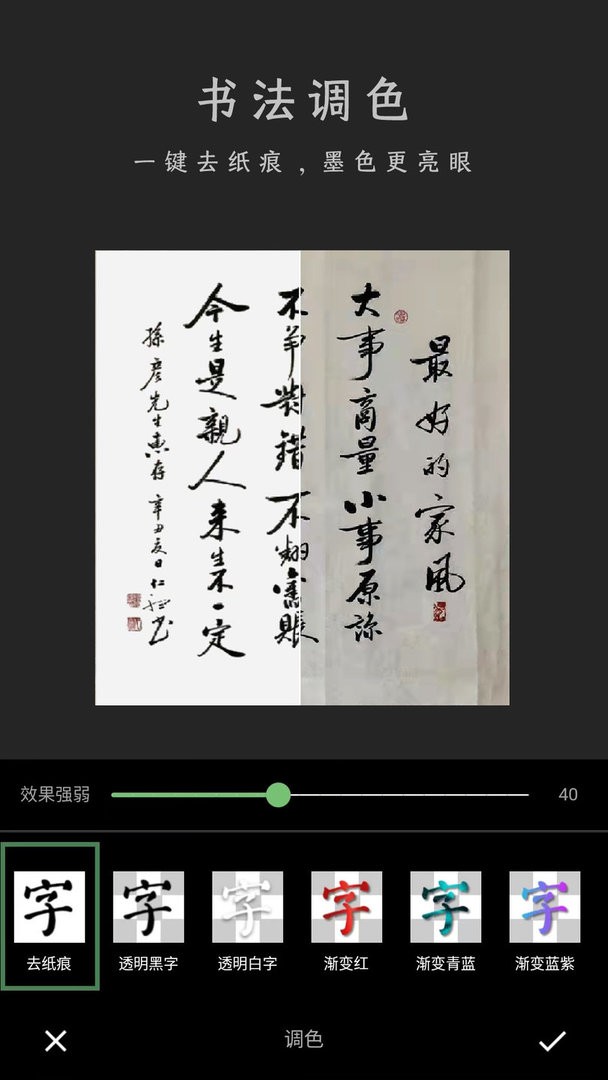 书法调色
一键去纸痕，墨色更亮眼
最好的家风
大事商量小事原谅
不争對錯不翻舊賬
今生是親人来生不一定
孫彦先生惠存
辛丑夏日仁
书
效果强弱
40
字
字
字
字
字
字
去纸痕
透明黑字
透明白字
渐变红
渐变青蓝
渐变蓝紫
调色